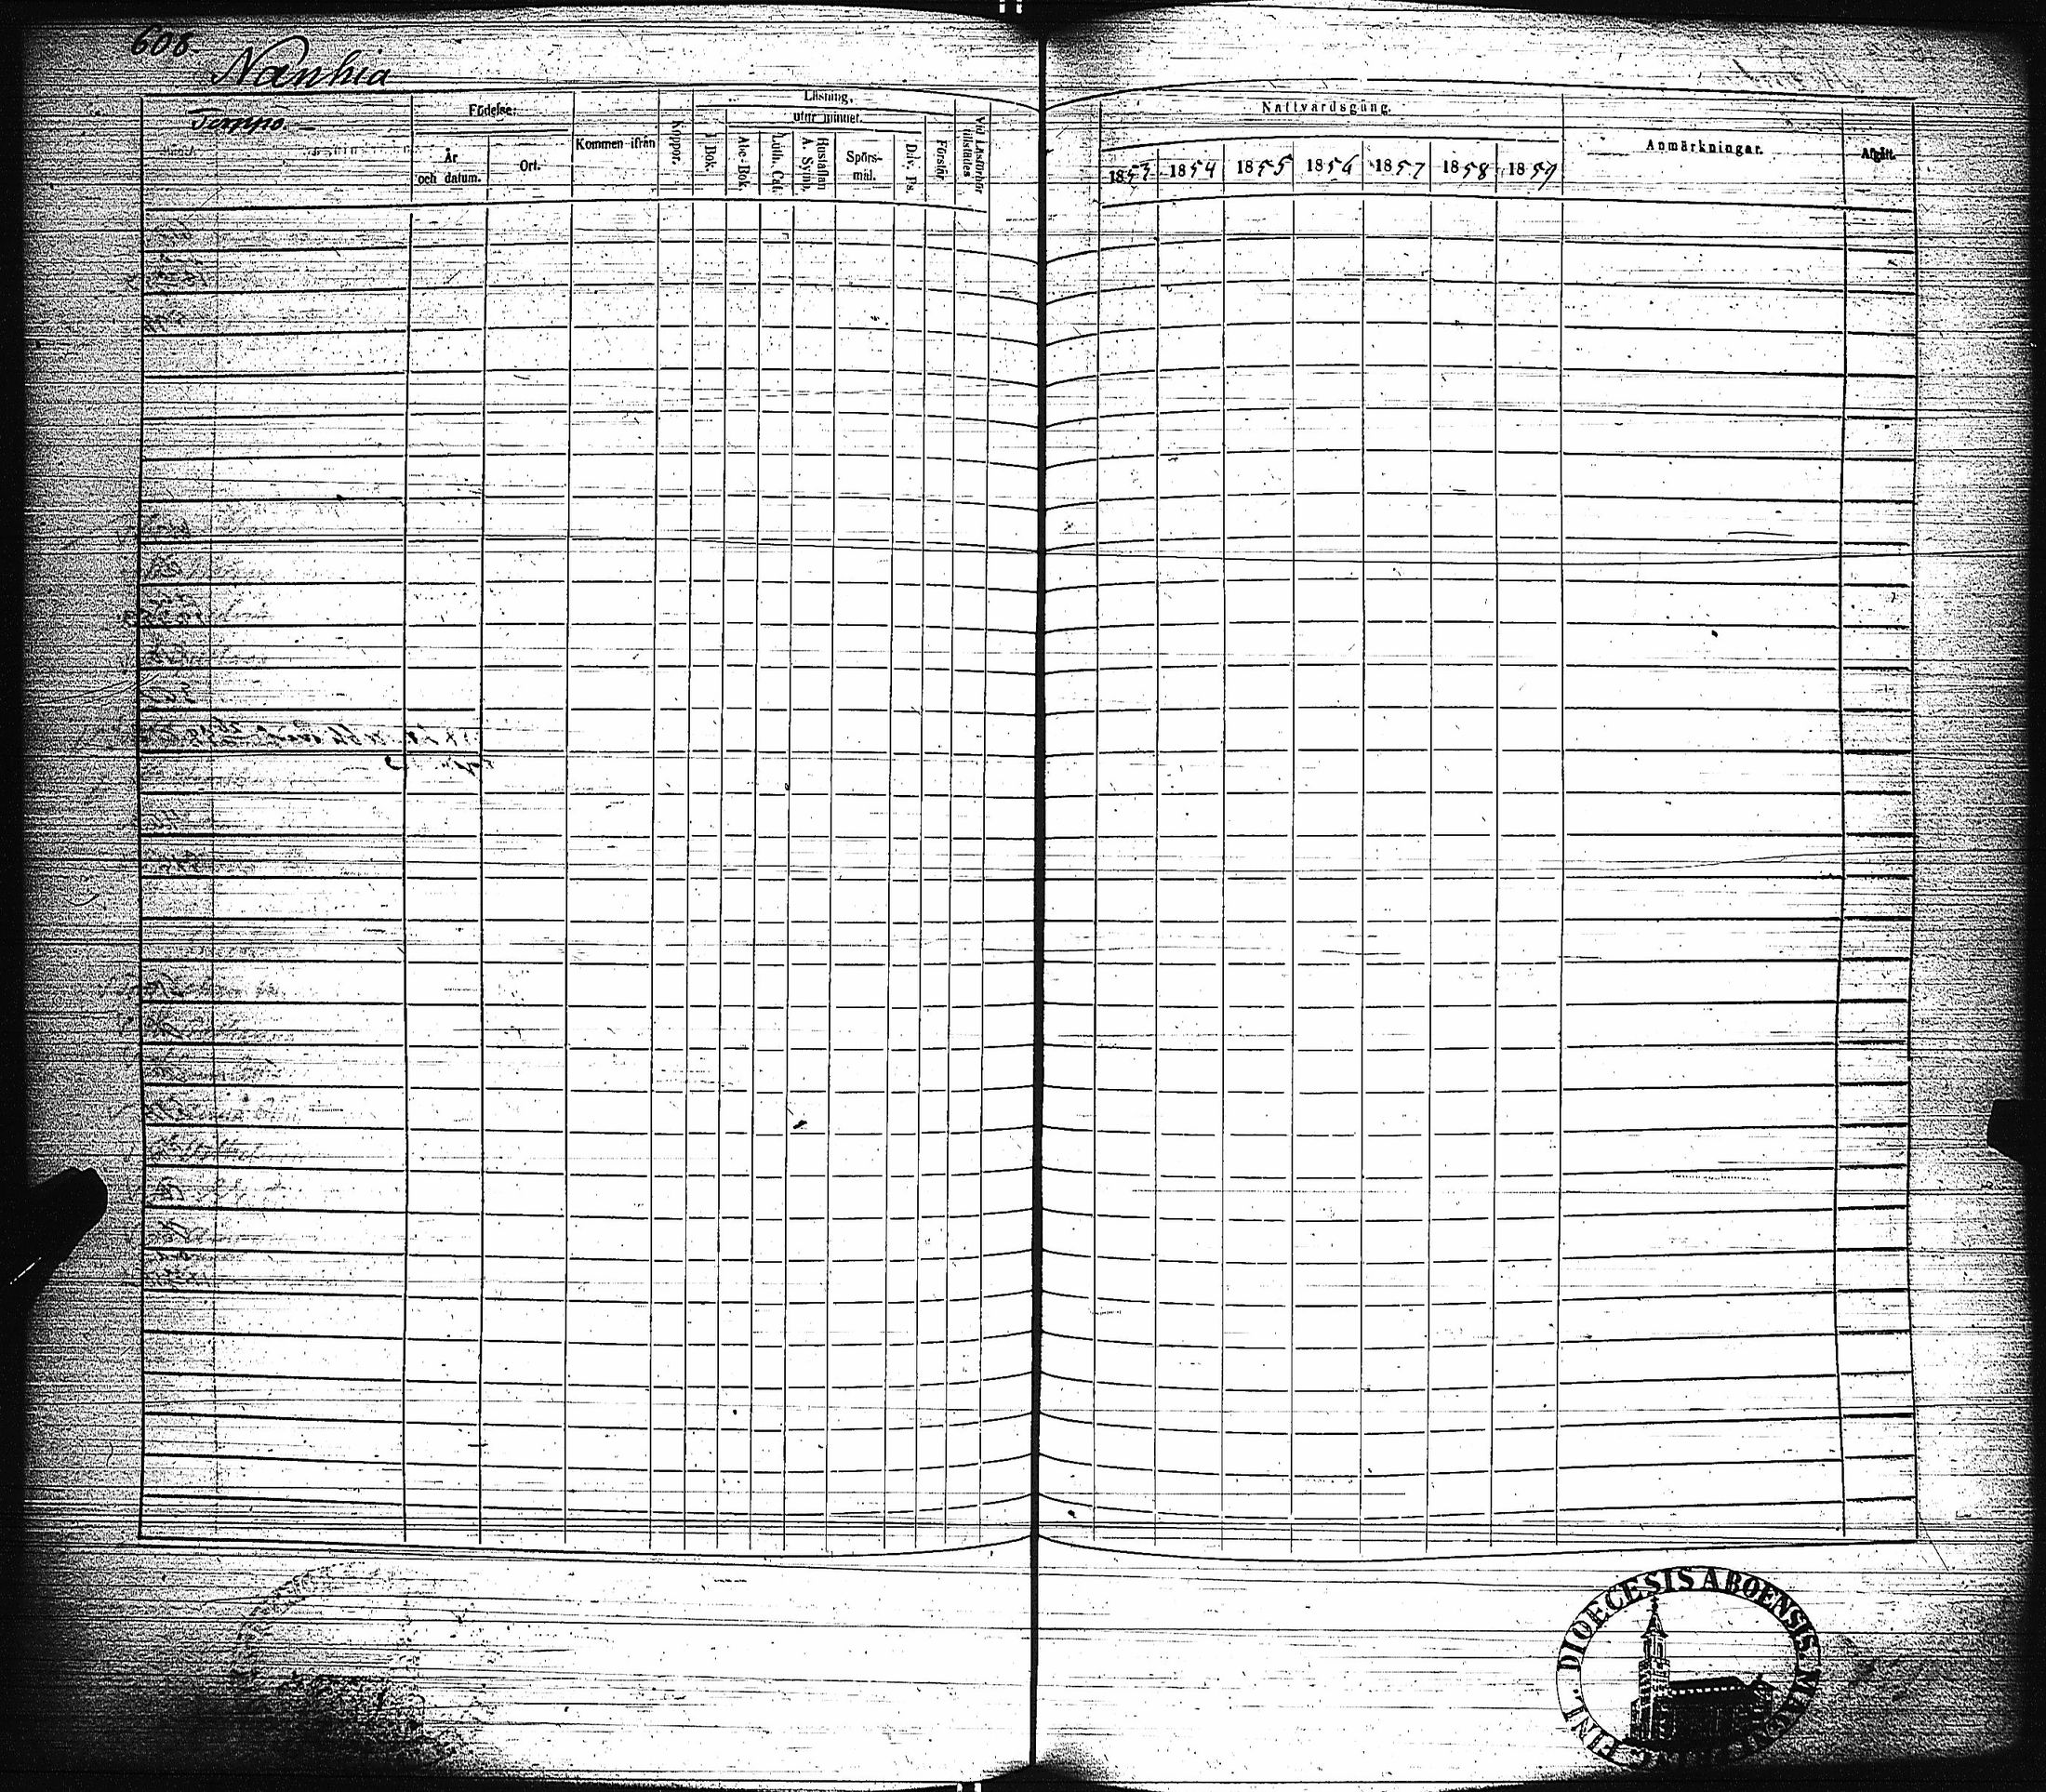 608.
Nanhia
Temppo.
Födelse:
År
och datum.
Ort.
Kommen ifrån
Koppor.
Läsning,
I Bok.
utur minnet.
Abc-Bok.
Luth. Cat.
Hustaflan
A. Symb.
Spörs-
mål.
Dav. Ps.
Förstår
Vid Läsförhör
tillstädes
Nattvardsgång.
1853
1854
1855
1856
1857
1858
1859
Anmärkningar.
Afgått.
DIOECESIS ABOENSIS MAGNI DUC. FINL.